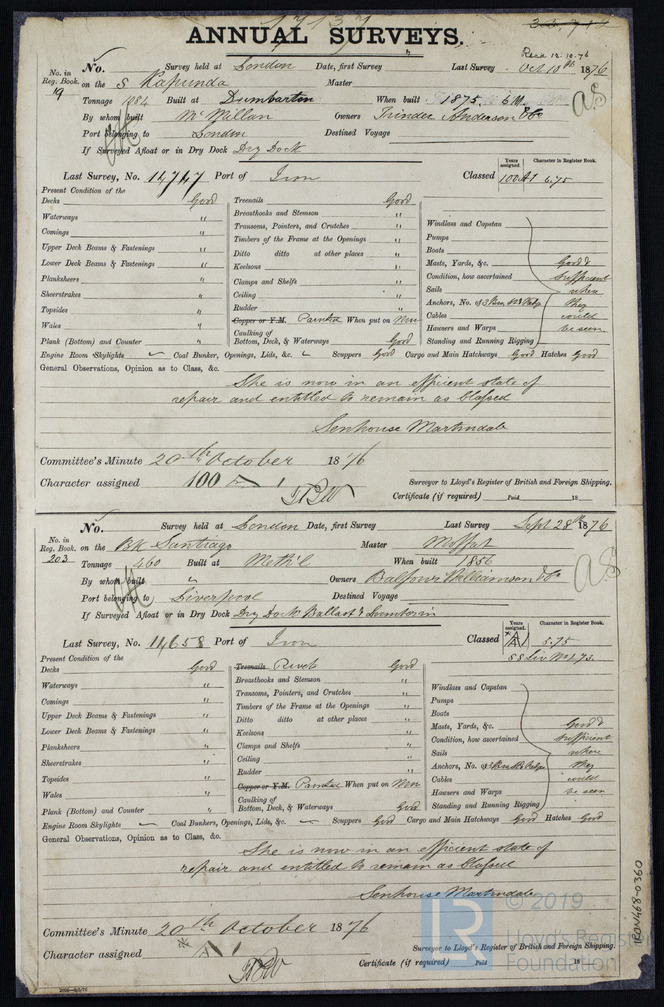 17137
ANNUAL SURVEYS.
Read 12.10.76
No. Survey held at London Date, first Survey Last Survey Oct 10th 1876
No. in Reg. Book.
19 on the S Kapunda Master
Tonnage 1084 Built at Dumbarton When built 1875 6 M
By whom built McMillan Owners Trinder Anderson & Co
Port belonging to London Destined Voyage
If Surveyed Afloat or in Dry Dock Dry Dock
Last Survey, No. 14747 Port of Iron Classed
Years assigned. Character in Register Book.
100A1 6.75
Present Condition of the
Decks Good
Waterways "
Comings "
Upper Deck Beams & Fastenings "
Lower Deck Beams & Fastenings "
Planksheers "
Sheerstrakes "
Topsides "
Wales "
Plank (Bottom) and Counter "
Treenails Good
Breasthooks and Stemson "
Transoms, Pointers, and Crutches "
Timbers of the Frame at the Openings "
Ditto ditto at other places "
Keelsons "
Clamps and Shelfs "
Ceiling "
Rudder "
Copper or Y.M. Painted When put on Now
Caulking of Bottom, Deck, & Waterways Good
Windlass and Capstan
Pumps
Boats
Masts, Yards, &c. Good &
Condition, how ascertained sufficient
Sails where
Anchors, No. of they
Cables could
Hawsers and Warps be seen
Standing and Running Rigging
Engine Room Skylights Coal Bunker, Openings, Lids, &c. Scuppers Good Cargo and Main Hatchways Good Hatches Good
General Observations, Opinion as to Class, &c.
She is now in an efficient state of
repair and entitled to remain as Classed
Senhouse Martindale
Committee's Minute 20th October 1876
Character assigned 100 A 1
Surveyor to Lloyd's Register of British and Foreign Shipping.
Certificate (if required) Paid 18
No. Survey held at London Date, first Survey Last Survey Sept 28th 1876
No. in Reg. Book.
203 on the Bk Santiago Master Moffat
Tonnage 460 Built at Meth'l When built 1856
By whom built " Owners Balfour Williamson & Co
Port belonging to Liverpool Destined Voyage
If Surveyed Afloat or in Dry Dock Dry Dock Ballast &
Last Survey, No. 14658 Port of Iron Classed
Years assigned. Character in Register Book.
A1 5.75
Present Condition of the
Decks Good
Waterways "
Comings "
Upper Deck Beams & Fastenings "
Lower Deck Beams & Fastenings "
Planksheers "
Sheerstrakes "
Topsides "
Wales "
Plank (Bottom) and Counter "
Treenails Rivets Good
Breasthooks and Stemson "
Transoms, Pointers, and Crutches "
Timbers of the Frame at the Openings "
Ditto ditto at other places "
Keelsons "
Clamps and Shelfs "
Ceiling "
Rudder "
Copper or Y.M. Painted When put on Now
Caulking of Bottom, Deck, & Waterways Good
Windlass and Capstan
Pumps
Boats
Masts, Yards, &c. Good &
Condition, how ascertained sufficient
Sails where
Anchors, No. of they
Cables could
Hawsers and Warps be seen
Standing and Running Rigging
Engine Room Skylights Coal Bunkers, Openings, Lids, &c. Scuppers Good Cargo and Main Hatchways Good Hatches Good
General Observations, Opinion as to Class, &c.
She is now in an efficient state of
repair and entitled to remain as Classed
Senhouse Martindale
Committee's Minute 20th October 1876
Character assigned A 1
Surveyor to Lloyd's Register of British and Foreign Shipping.
Certificate (if required) Paid 18
© 2019
Lloyd's Register
Foundation
IRON468-0360